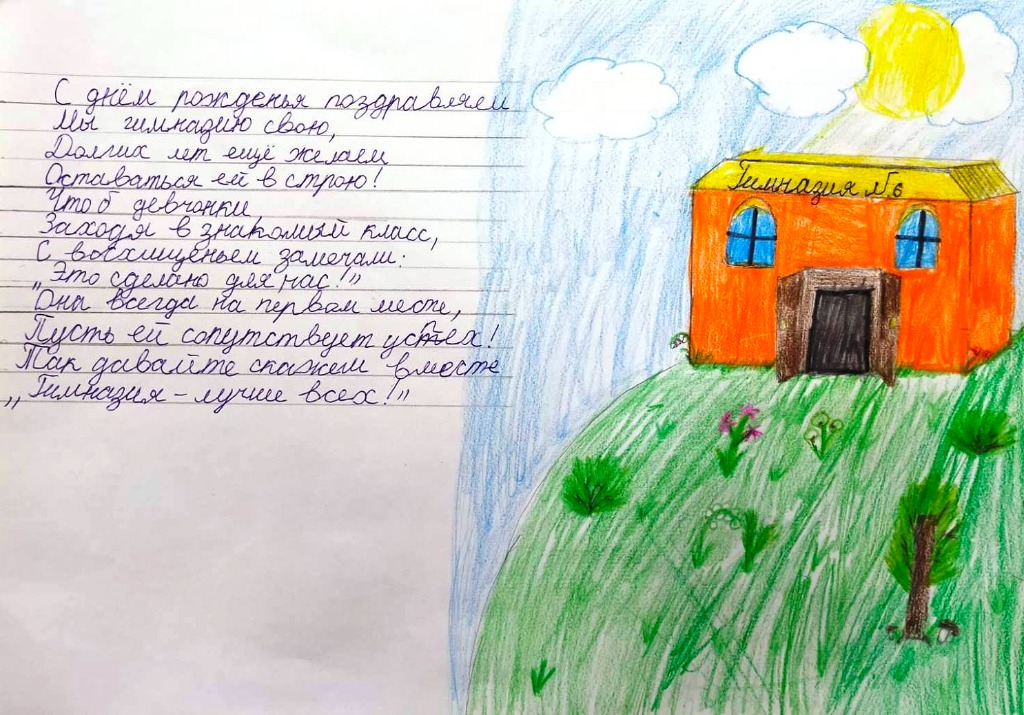 С днём рожденья поздравляем
Мы гимназию свою,
Долгих лет ещё желаем
Оставаться ей в строю!
Чтоб девчонки,
Заходя в знакомый класс,
С восхищеньем замечали:
„Это сделано для нас!"
Она всегда на первом месте,
Пусть ей сопутствует успех!
Так давайте скажем вместе
„Гимназия - лучше всех!"
Гимназия №6